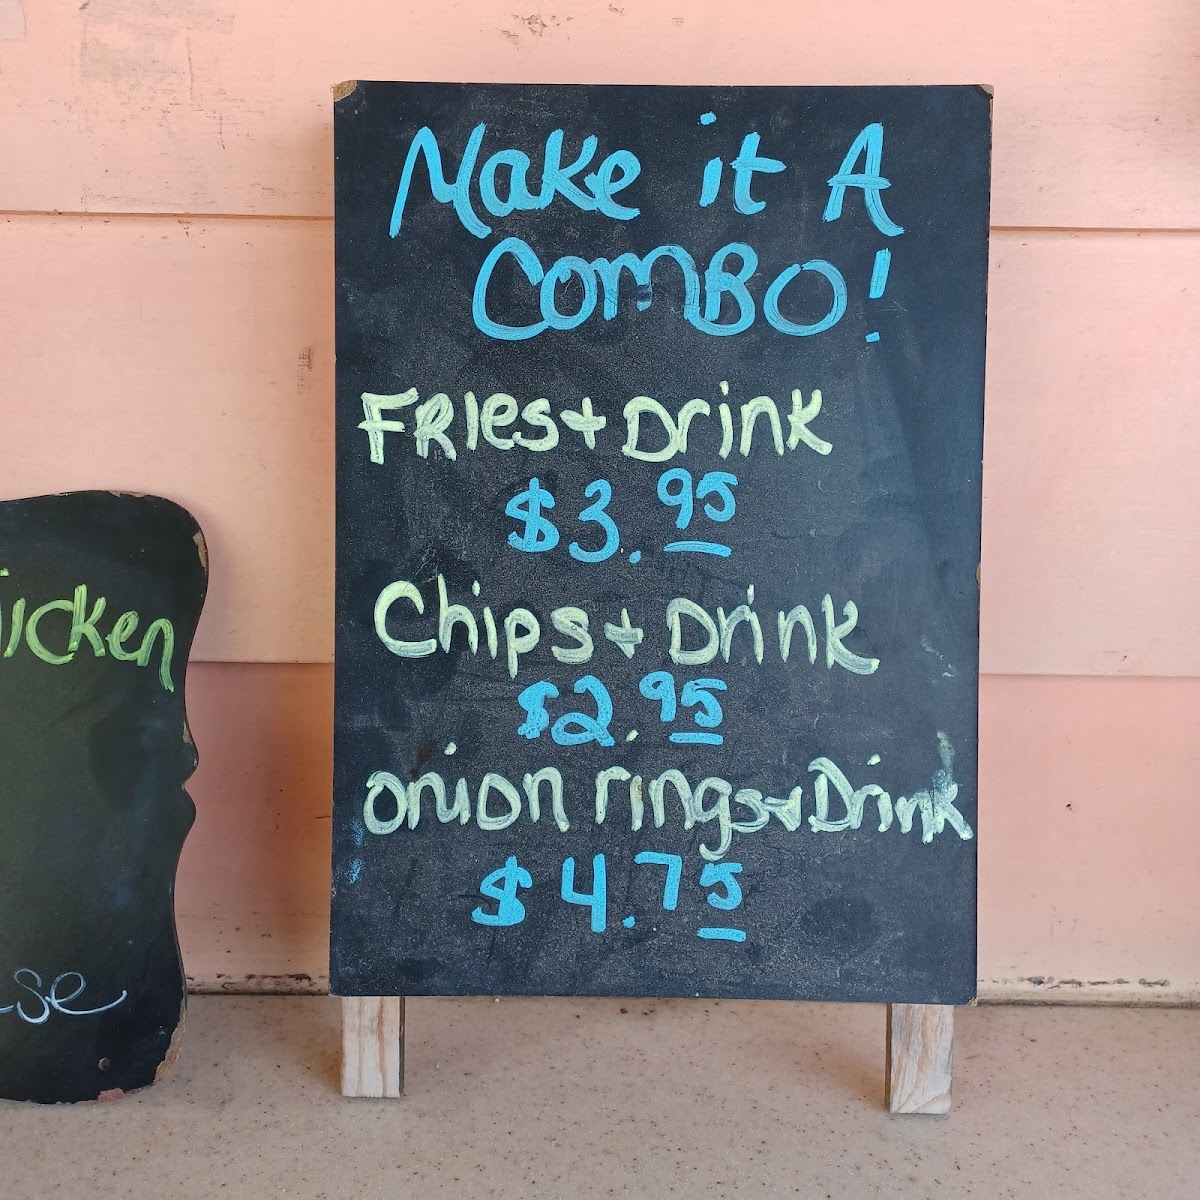 Make it A
COMBO!
FRIes + Drink
$3.95
Chips + Drink
$2.95
onion rings + Drink
$4.75